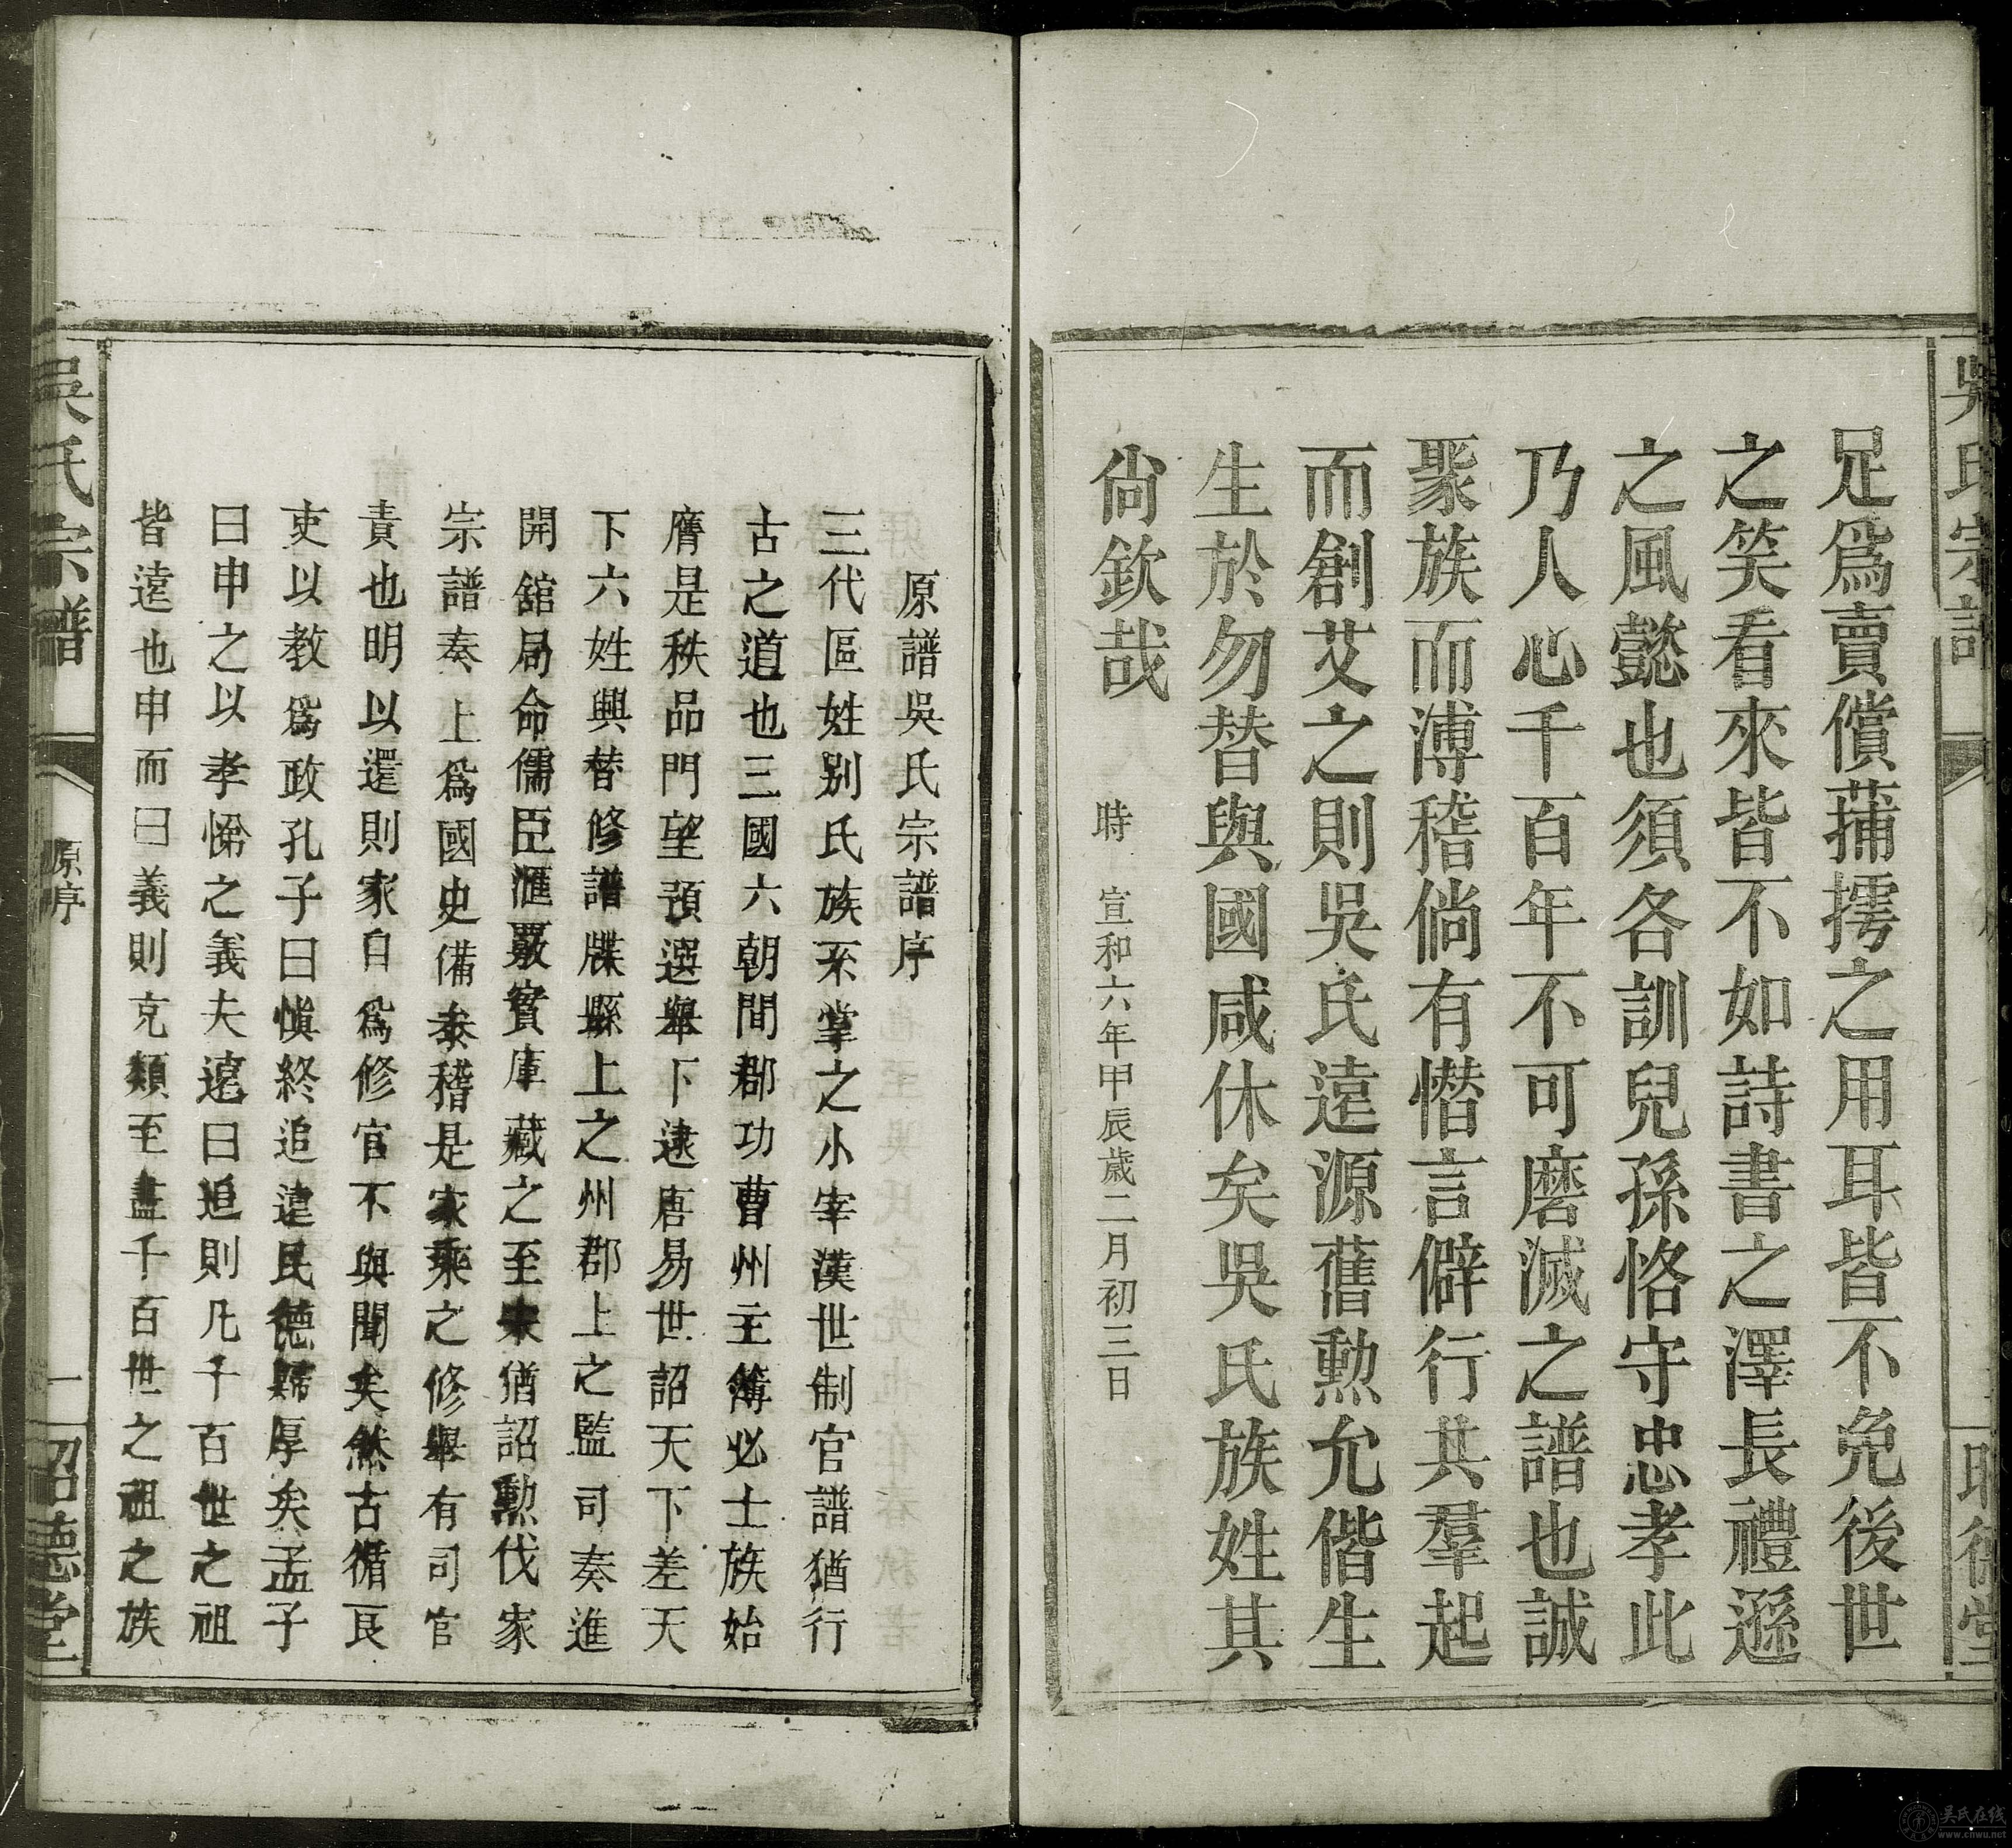 足爲賣償蒱摴之用耳皆不免後世
之笑看來皆不如詩書之澤長禮遜
之風懿也須各訓兒孫恪守忠孝此
乃人心千百年不可磨滅之譜也誠
聚族而溥稽倘有憯言僻行共羣起
而創艾之則吳氏遠源舊勲允偕生
生於勿替與國咸休矣吳氏族姓其
尙欽哉
時 宣和六年甲辰歲二月初三日
吳氏宗譜
原譜吳氏宗譜序
三代區姓别氏族系掌之小宰漢世制官譜猶行
古之道也三國六朝間郡功曹州主簿必士族始
膺是秩品門望預選舉下逮唐易世詔天下差天
下六姓興替修譜牒縣上之州郡上之監司奏進
開舘局命儒臣滙覈實庫藏之至宋猶詔勲伐家
宗譜奏上爲國史備叅稽是家乘之修舉有司官
責也明以還則家自爲修官不與聞矣然古循良
吏以教爲政孔子曰愼終追遠民德歸厚矣孟子
曰申之以孝悌之義夫遠曰追則凡千百世之祖
皆遠也申而曰義則克類至盡千百世之祖之族
吳氏宗譜
原序
一
昭德堂
吴氏在线
www.cnwu.net